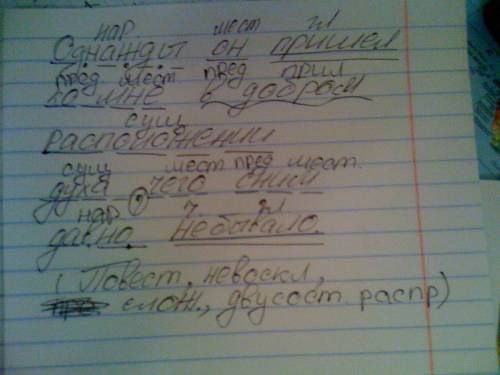 нар мест гл
Однажды он пришел
пред мест пред прил
ко мне в добром
сущ
расположении
сущ мест пред мест.
духа чего с ним
нар 2 ч. гл
давно не бывало.
( Повест, невоскл,
слож., двусост. распр)